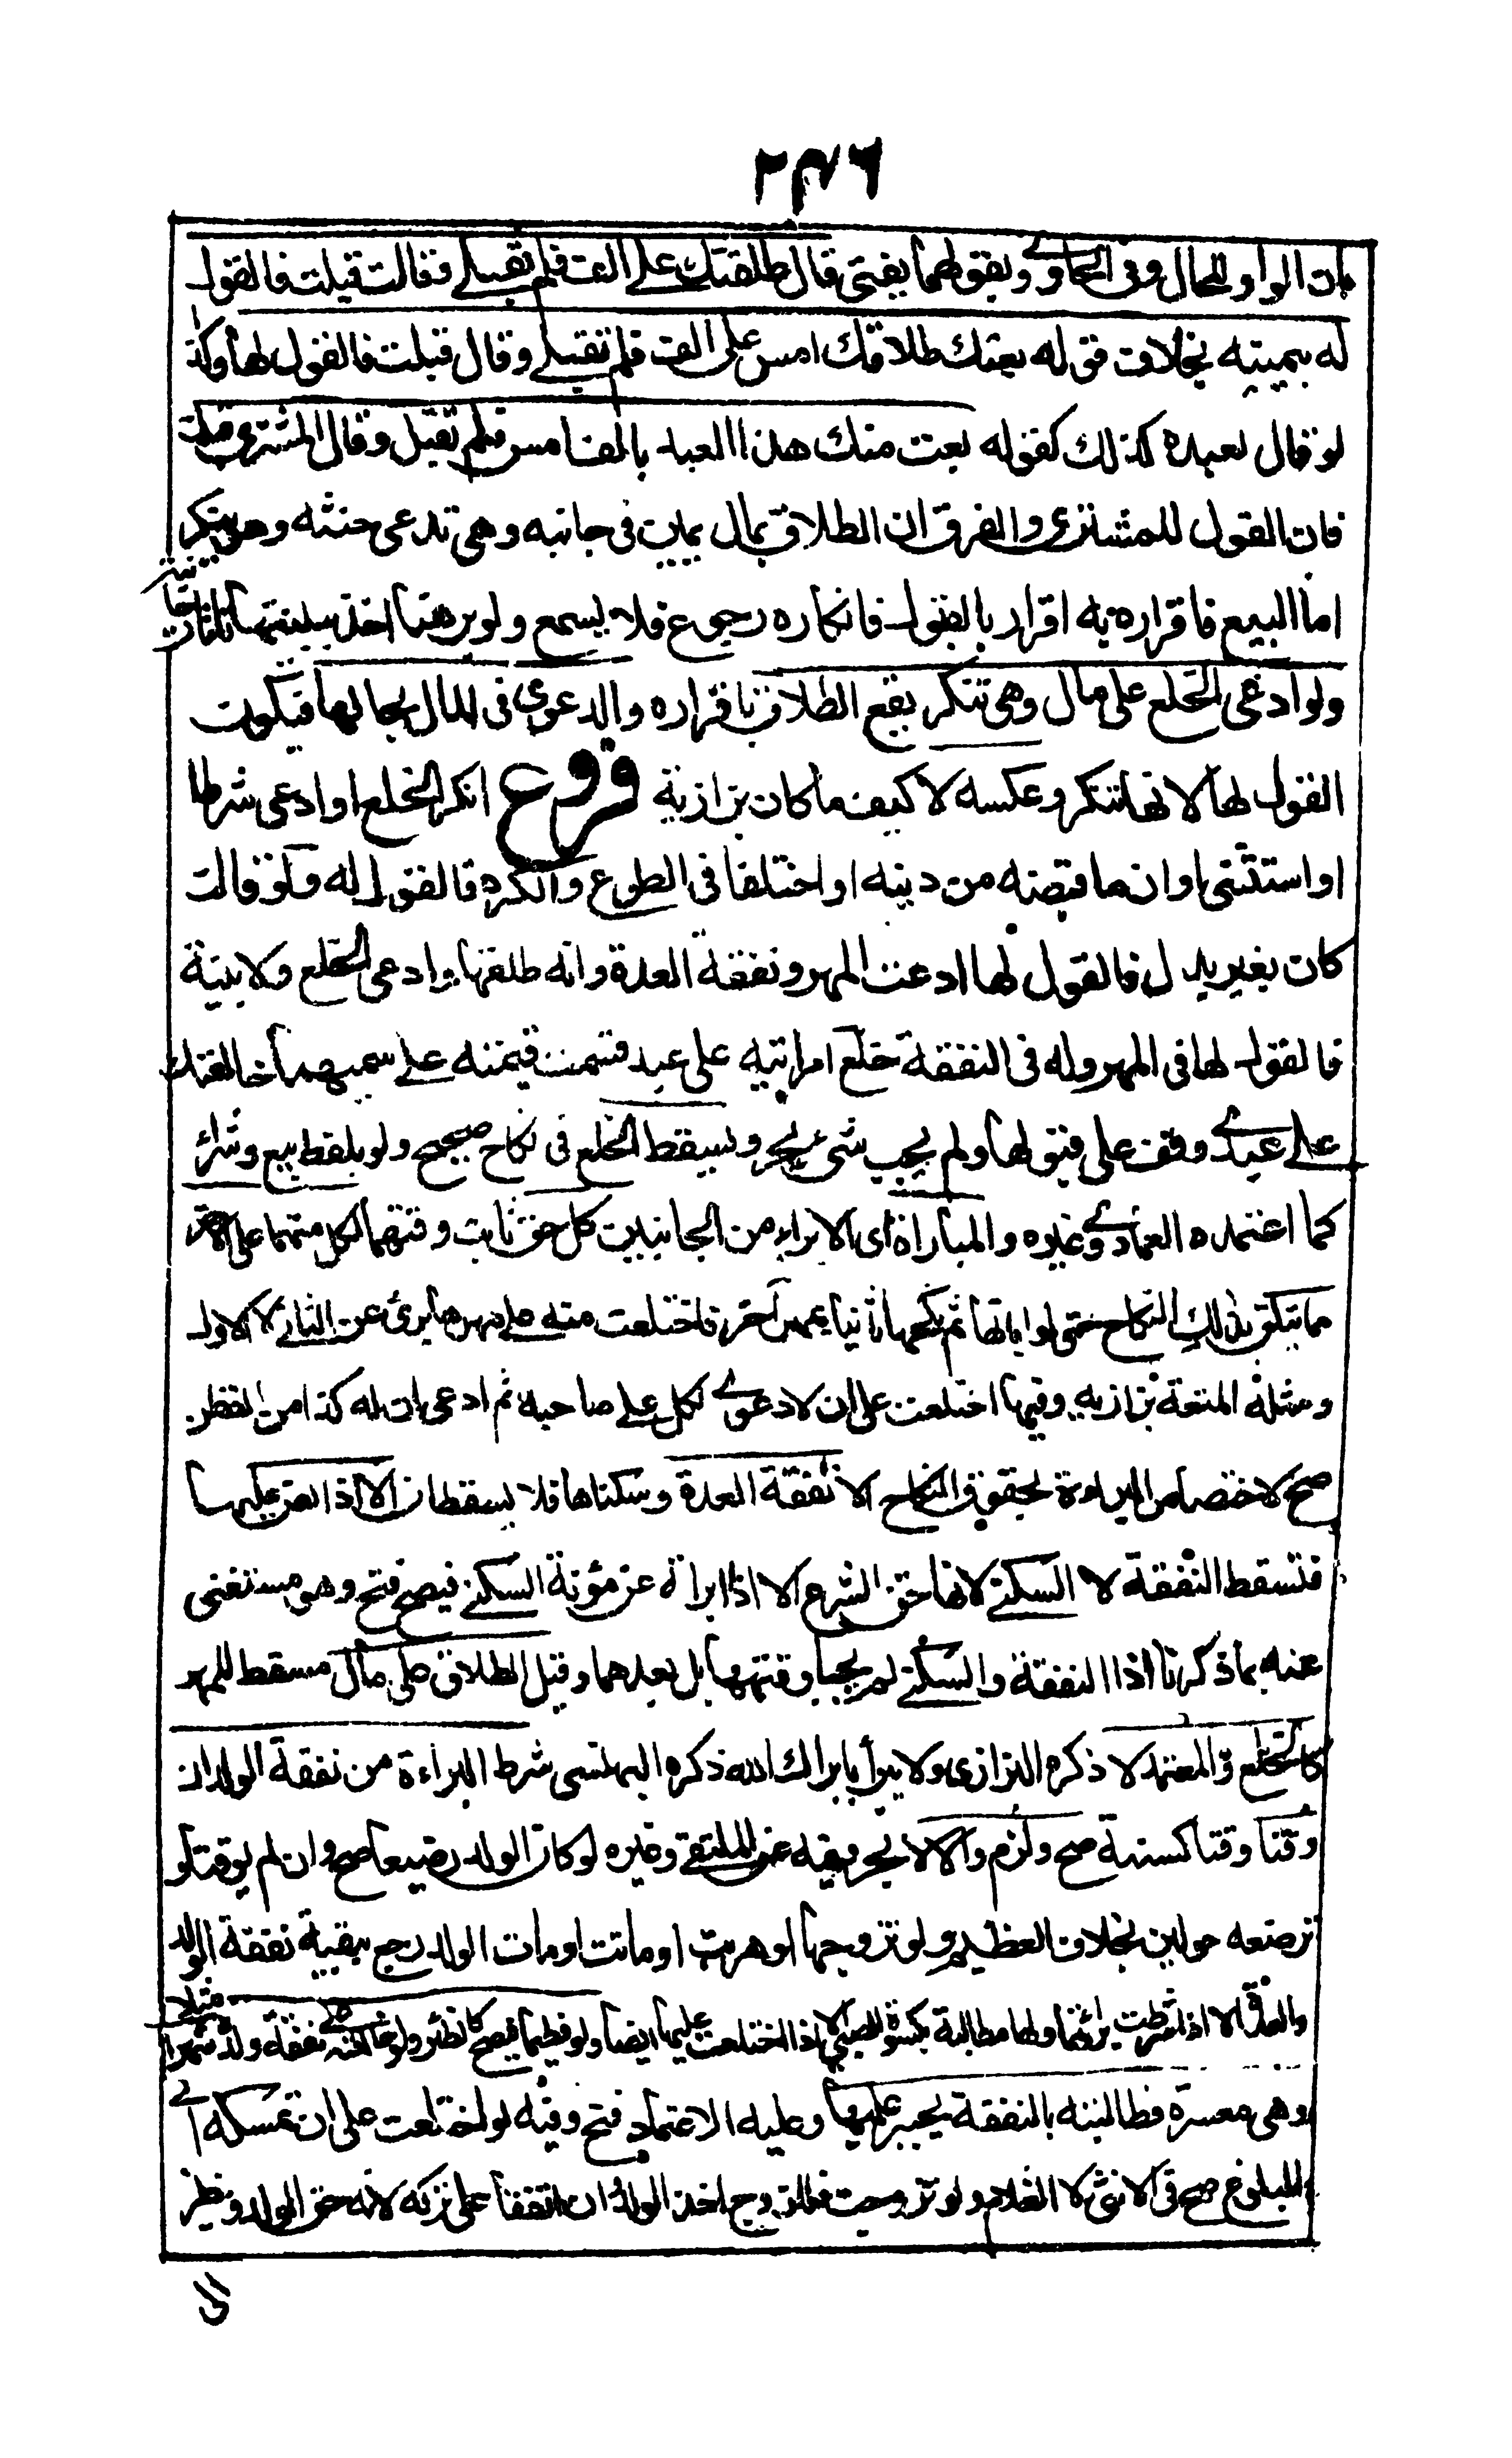 ٢٣٧٦
بان الواو للحال وفى الحاوى وبقولهما يفتى قال طلقتك على الف فلم تقبلى فقالت قبلت فالقول
له بيمينه بخلاف قوله بعتك طلاقك امس على الف فلم تقبلى وقال قبلت فالقول لها وكذا
لو قال لعبده كذلك كقوله بعت منك هذا العبد بالف امس فلم تقبل وقال المشترى قبلت
فان القول للمشترى والفرق ان الطلاق بمال يمين فى جانبه وهى تدعى حنثه وهو ينكر
اما البيع فاقراره به اقرار بالقبول فانكاره رجوع فلا يسمع ولو برهنا اخذ ببينتها تاتارخانية
ولو ادعى الخلع على مال وهى تنكر يقع الطلاق باقراره والدعوى فى المال بحالها فيكون
القول لها لانها تنكر وعكسه لا كيف ما كان بزازية فروع انكر الخلع او ادعى شرطا
او استثنى او ان ما قبضه من دينه او اختلفا فى الطوع والكره فالقول له ولو قالت
كان بغير بدل فالقول لها ادعت المهر ونفقة العدة وانه طلقها وادعى الخلع ولا بينة
فالقول لها فى المهر وله فى النفقة خلع امراتيه على عبد قسمت قيمته على مسميهما خالعتك
على عبدى وقف على قبولها ولم يجب شئ بحر ويسقط الخلع فى نكاح صحيح ولو بلفظ بيع وشراء
كما اعتمده العمادى وغيره والمباراة اى الابراء من الجانبين كل حق ثابت وقتهما لكل منهما على الاخر
مما يتعلق بذلك النكاح حتى لو ابانها ثم نكحها ثانيا بمهر آخر فاختلعت منه على مهرها برئ عن الثانى لا الاول
ومثله المتعة بزازيه وفيها اختلعت على ان لا دعوى لكل على صاحبه ثم ادعى ان له كذا من القطن
صح لاختصاص البراءة بحقوق النكاح الا نفقة العدة وسكناها فلا يسقطان الا اذا نص عليها
فتسقط النفقة لا السكنى لانها حق الشرع الا اذا ابراته عن مؤنة السكنى فيصح فتح وهو مستغنى
عنه بما ذكرنا اذا النفقة والسكنى لم يجبا وقتهما بل بعدهما وقيل الطلاق على مال مسقط للمهر
كالخلع والمعتمد لا ذكره البزازى ولا يبرأ بابراك الله ذكره البهنسى شرط البراءة من نفقة الولد ان
وقتا وقتا كسنة صح ولزم والا لا بحر وفيه عن الملتقى وغيره لو كان الولد رضيعا صح وان لم يوقتا لو
ترضعه حولين بخلاف الفطيم ولو تزوجها او هربت او ماتت او مات الولد رجع ببقية نفقة الولد
والعدة الا اذا شرطت برائتها ولها مطالبة بكسوة الصبى الا اذا اختلعت عليها ايضا ولو فطيما فيصح كالظئر ولو خالعته على نفقة ولده شهرا مثلا
وهى معسرة فطالبته بالنفقة يجبر عليها وعليه الاعتماد فتح وفيه لو اختلعت على ان تمسكه الى
البلوغ صح فى الانثى لا الغلام ولو تزوجت فللزوج اخذ الولد وان اتفقا على تركه لانه حق الولد ونظر
الى